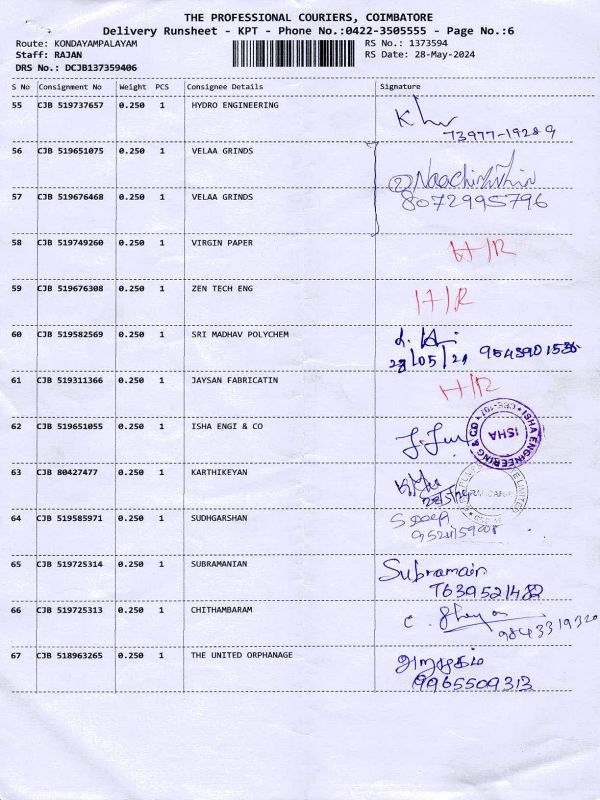 THE PROFESSIONAL COURIERS, COIMBATORE
Delivery Runsheet - KPT - Phone No.:0422-3505555 - Page No.:6
Route: KONDAYAMPALAYAM RS No.: 1373594
Staff: RAJAN RS Date: 28-May-2024
DRS No.: DCJB137359406
S No Consignment No Weight PCS Consignee Details Signature
55 CJB 519737657 0.250 1 HYDRO ENGINEERING
73977-19289
56 CJB 519651075 0.250 1 VELAA GRINDS
57 CJB 519676468 0.250 1 VELAA GRINDS
8072995796
58 CJB 519749260 0.250 1 VIRGIN PAPER H/R
59 CJB 519676308 0.250 1 ZEN TECH ENG H/R
60 CJB 519582569 0.250 1 SRI MADHAV POLYCHEM
61 CJB 519311366 0.250 1 JAYSAN FABRICATIN H/R
62 CJB 519651055 0.250 1 ISHA ENGI & CO
ISHA ENGINEERING & CO
ISHA
63 CJB 80427477 0.250 1 KARTHIKEYAN
64 CJB 519585971 0.250 1 SUDHGARSHAN
65 CJB 519725314 0.250 1 SUBRAMANIAN Subramain
7639521482
66 CJB 519725313 0.250 1 CHITHAMBARAM
9843319320
67 CJB 518963265 0.250 1 THE UNITED ORPHANAGE
9965509313